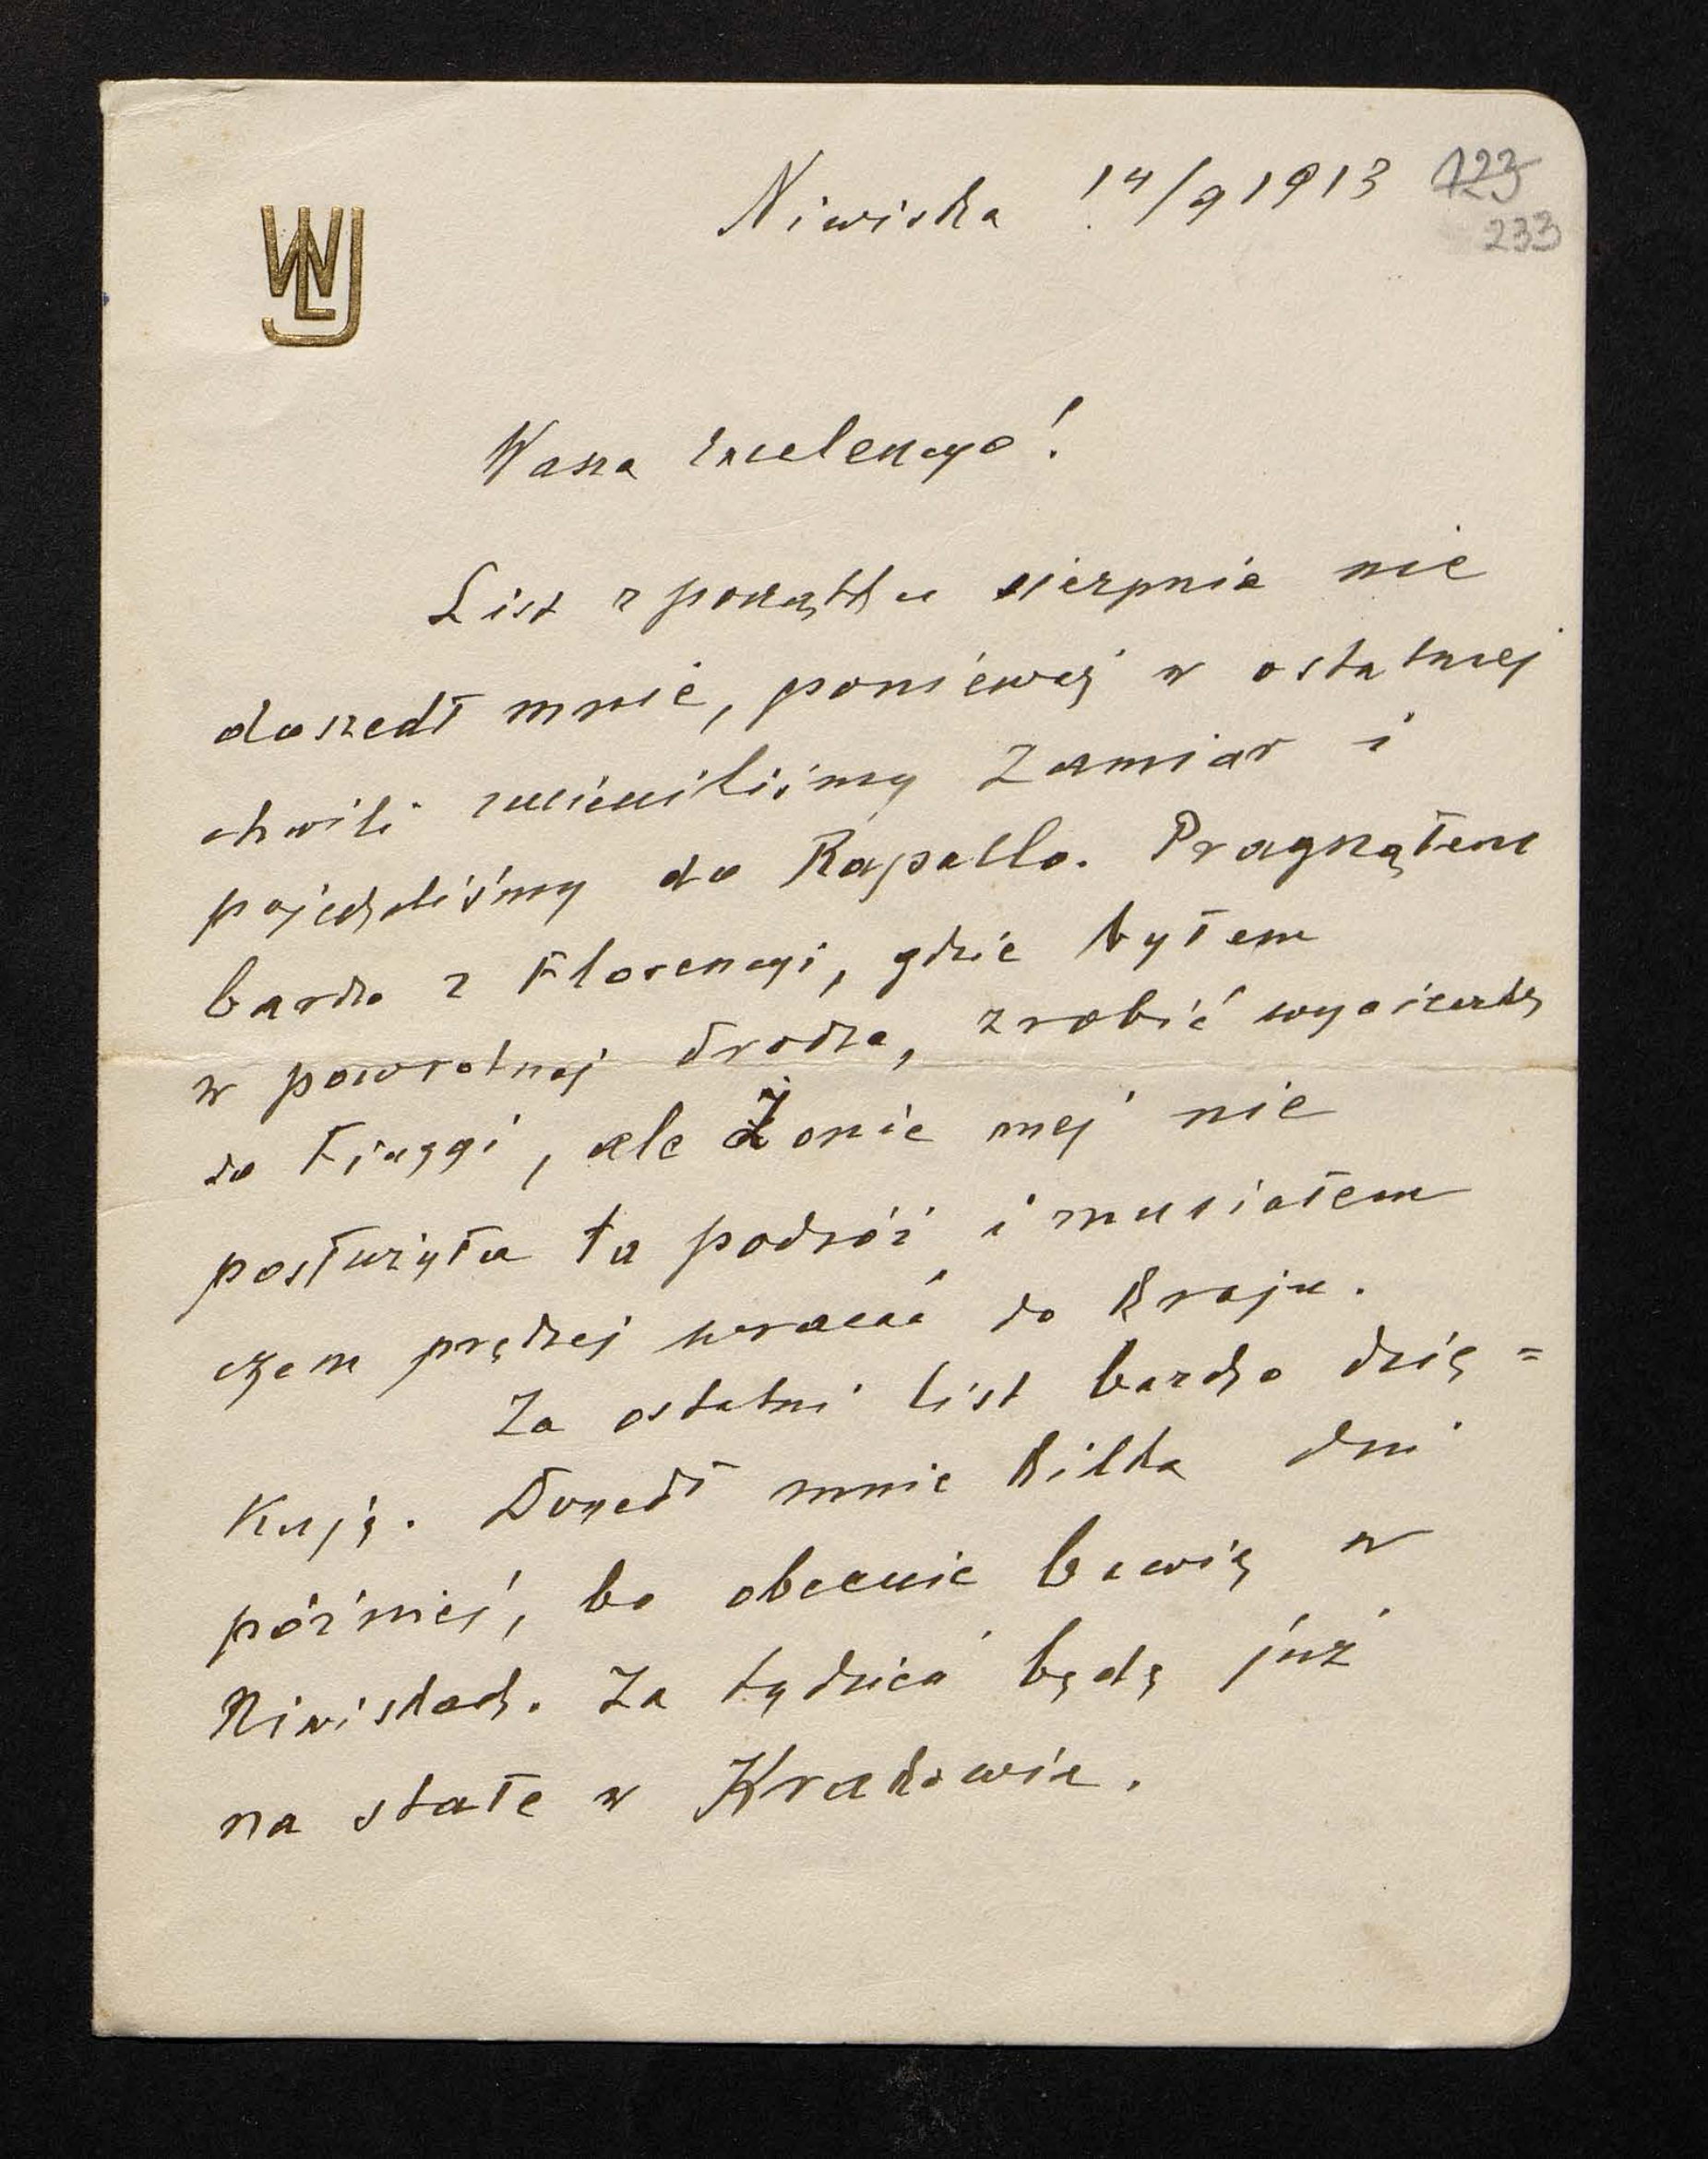 Niwiska 14/9 1913
123
233
WLJ
Wasza Excelencyo!
List z początku sierpnia nie
doszedł mnie, ponieważ w ostatniej
chwili zmieniliśmy zamiar i
pojechaliśmy do Rapallo. Pragnąłem
bardzo z Florencyi, gdzie byłem
w powrotnej drodze, zrobić wycieczkę
do Fiuggi, ale Żonie mej nie
posłużyła ta podróż i musiałem
czem prędzej wracać do Kraju.
Za ostatni list bardzo dzię=
kuję. Doszedł mnie kilka dni
później, bo obecnie bawię w
Niwiskach. Za tydzień będę już
na stałe w Krakowie.